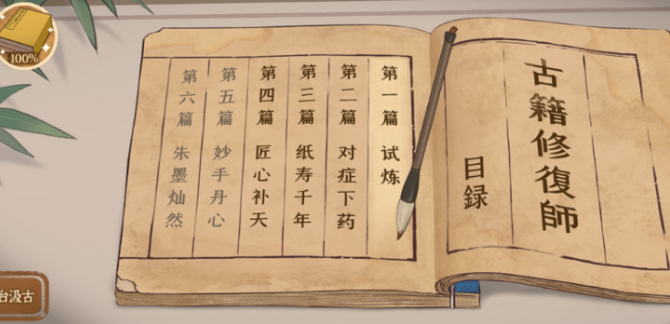 古籍修復師
目録
第一篇 试炼
第二篇 对症下药
第三篇 纸寿千年
第四篇 匠心补天
第五篇 妙手丹心
第六篇 朱墨灿然
100%
台汲古